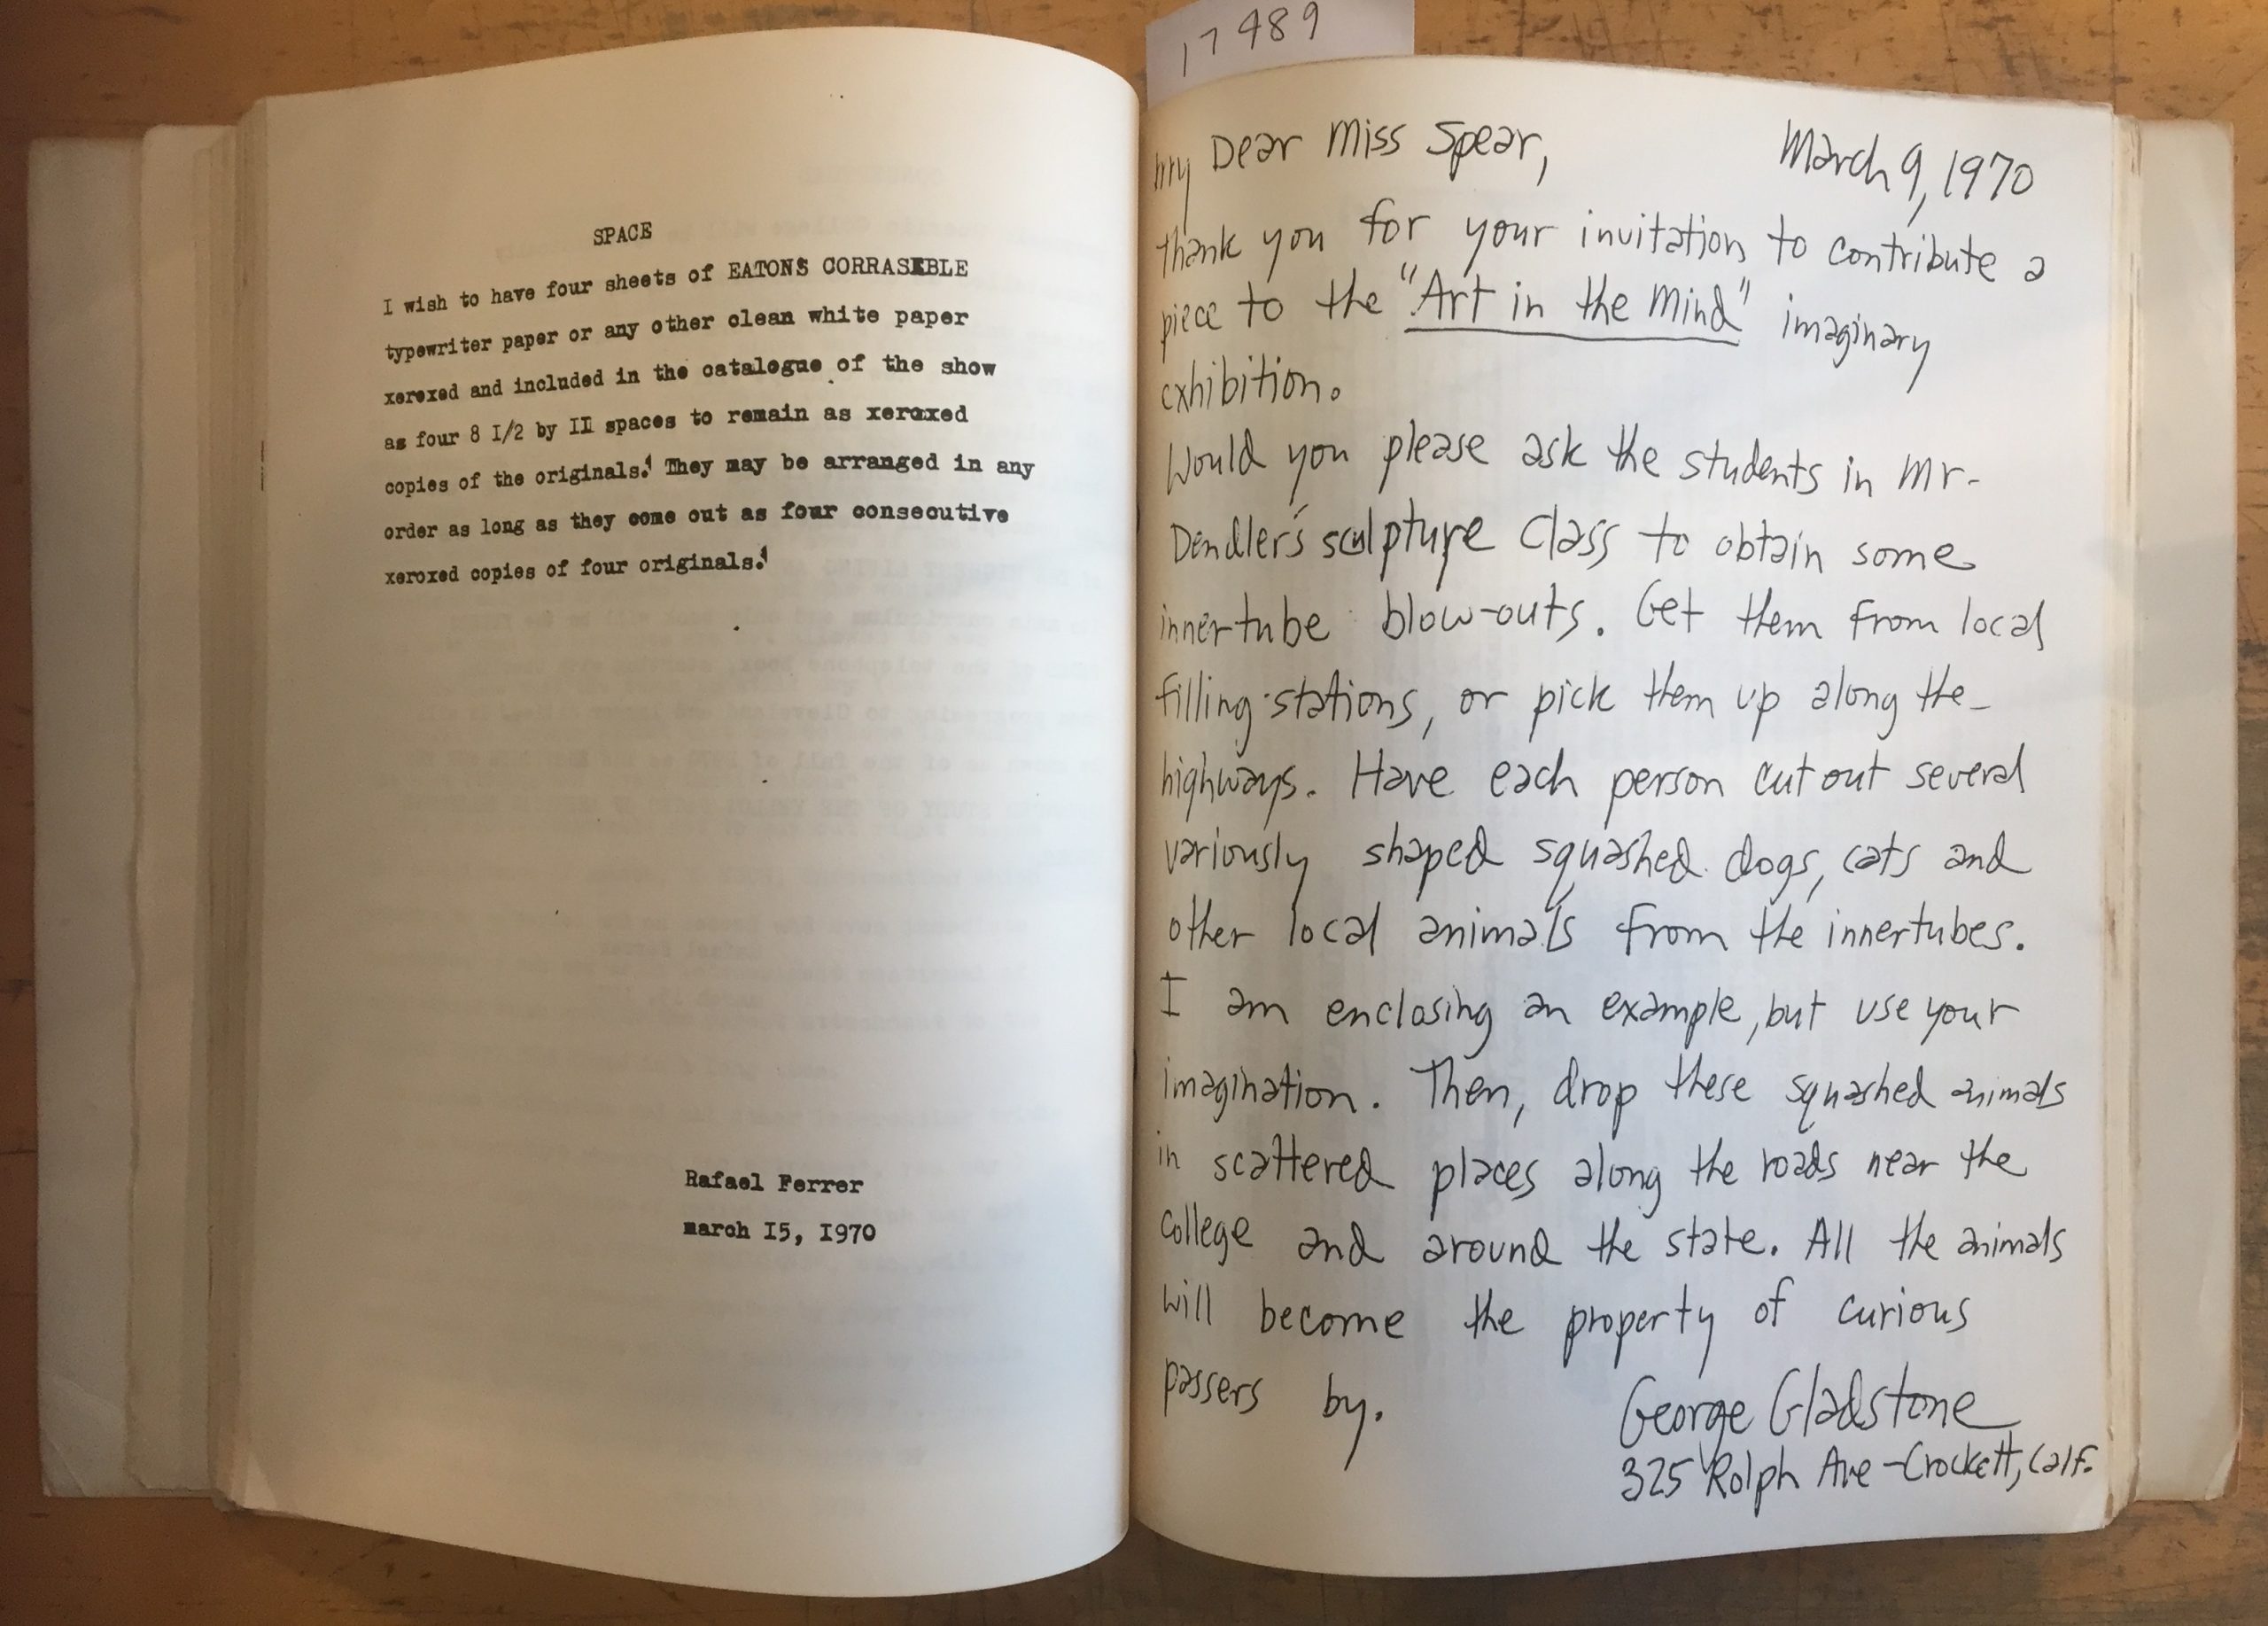 SPACE
I wish to have four sheets of EATONS CORRASIBLE
typewriter paper or any other clean white paper
xeroxed and included in the catalogue of the show
as four 8 I/2 by II spaces to remain as xeroxed
copies of the originals. They may be arranged in any
order as long as they come out as four consecutive
xeroxed copies of four originals.
Rafael Ferrer
march I5, I970
17489
my Dear Miss Spear,
March 9, 1970
thank you for your invitation to contribute a
piece to the "Art in the Mind" imaginary
exhibition.
Would you please ask the students in Mr.
Dendler's sculpture class to obtain some
innertube blow-outs. Get them from local
filling stations, or pick them up along the
highways. Have each person cut out several
variously shaped squashed dogs, cats and
other local animals from the innertubes.
I am enclosing an example, but use your
imagination. Then, drop these squashed animals
in scattered places along the roads near the
college and around the state. All the animals
will become the property of curious
passers by.
George Gladstone
325 Rolph Ave - Crockett, Calf.